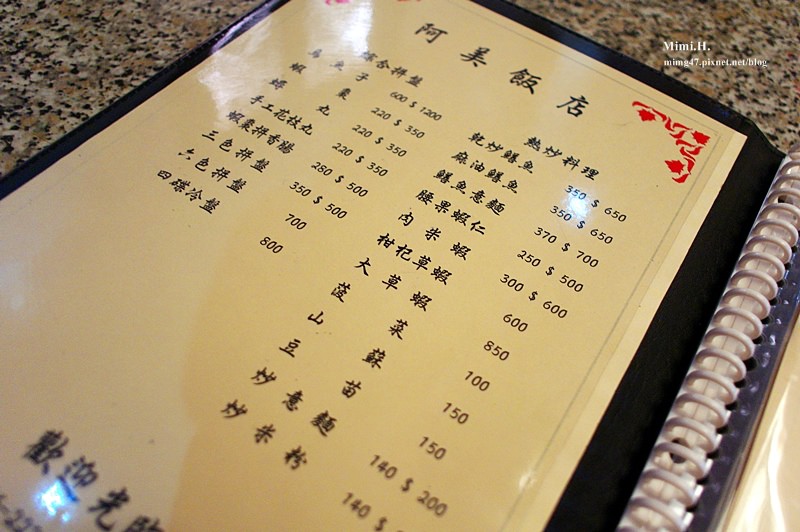 Mimi.H.
mimg47.pixnet.net/blog
阿美飯店
綜合拼盤
烏魚子 600 $ 1200
蝦棗 220 $ 350
丸 220 $ 350
手工花枝丸 220 $ 350
蝦棗拼香腸 280 $ 500
三色拼盤 350 $ 500
六色拼盤 700
四碟冷盤 800
熱炒料理
乾炒鱔魚 350 $ 650
麻油鱔魚 350 $ 650
鱔魚意麵 370 $ 700
腰果蝦仁 250 $ 500
肉米蝦 300 $ 600
枸杞草蝦 600
大草蝦 850
菠菜 100
山蘇 150
豆苗 150
炒意麵 140 $ 200
炒米粉 140 $
歡迎光臨